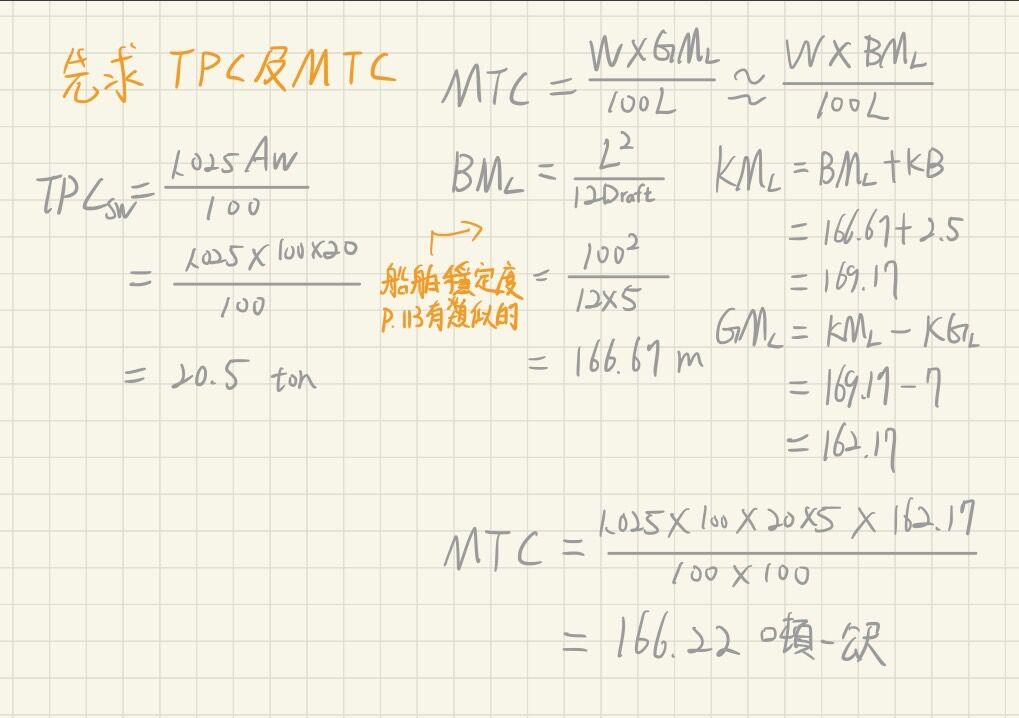 先求 TPC及MTC
TPC_SW = 1.025 Aw / 100
= 1.025 × 100×20 / 100
= 20.5 ton
MTC = W×GM_L / 100L ≈ W×BM_L / 100L
BM_L = L² / 12Draft
= 100² / 12×5
= 166.67 m
船舶穩定度
P.113有類似的
KM_L = BM_L + KB
= 166.67 + 2.5
= 169.17
GM_L = KM_L − KG_L
= 169.17 − 7
= 162.17
MTC = 1.025 × 100 × 20×5 × 162.17 / 100 × 100
= 166.22 噸-公尺